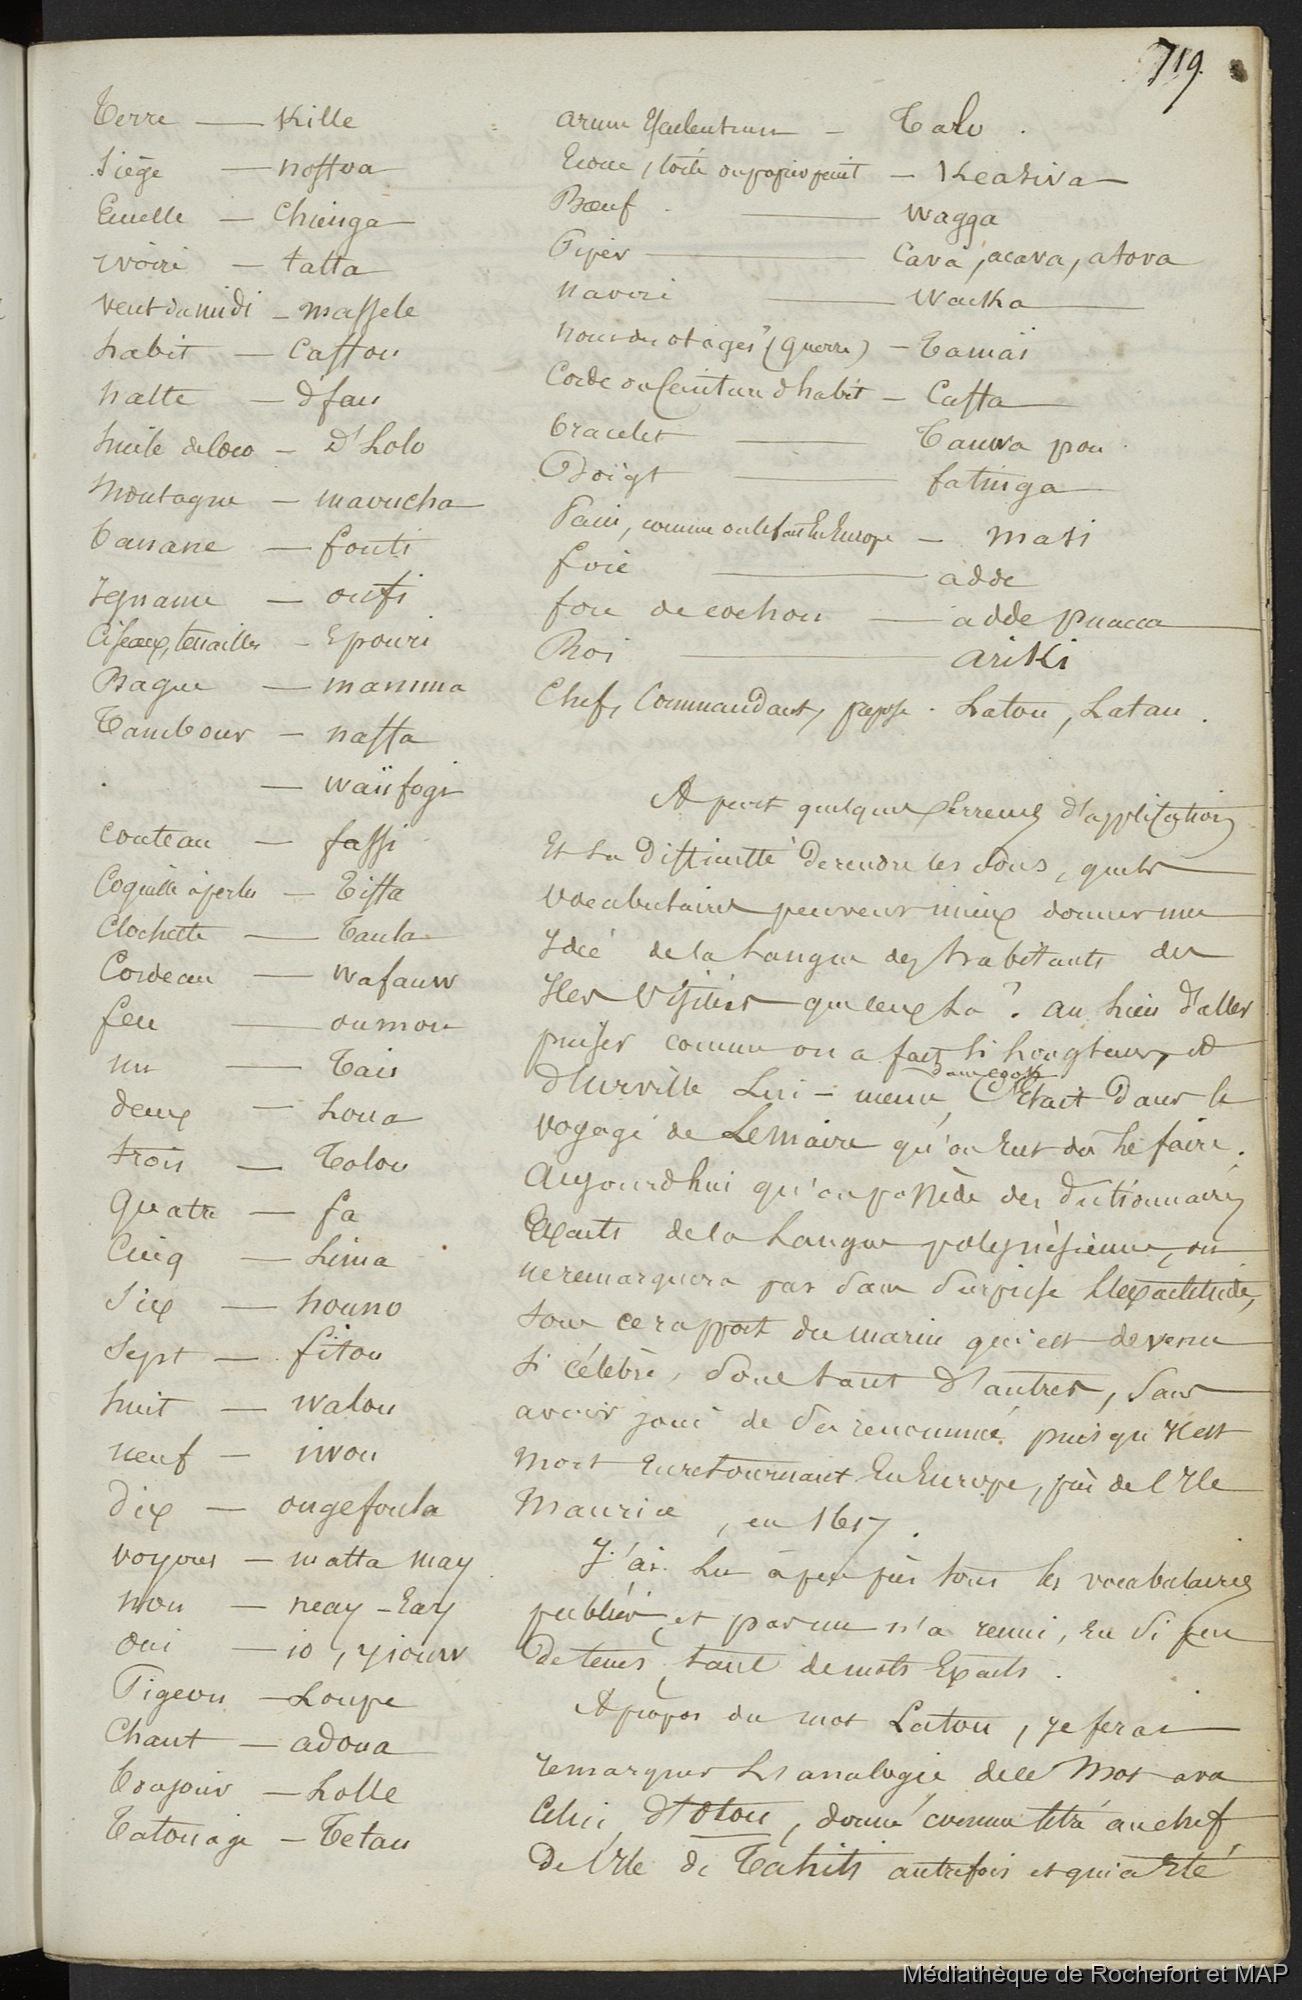 719.
Terre — Kille
Siège — noffoa
Ecuelle — Chienga
ivoire — tatta
vent du midi — massele
habit — Caffou
natte — d'fau
huile de Coco — D'Lolo
Montagne — mavucha
banane — fouti
Ygname — oufi
Ciseaux, tenailles — Epouri
Bague — mamma
Tambour — naffa
— waiifogi
couteau — faffi
Coquille à perles — Tiffa
Clochette — Taula
Cordeau — wafauw
feu — oumou
un — Tais
deux — Loua
trois — Tolou
quatre — fa
Cinq — Lima
Six — houno
Sept — fitou
huit — walou
neuf — iwou
dix — ongefoula
voyons — matta may
non — neay - Eay
oui — io, yiouw
Pigeon — Loupe
Chant — adoua
bonjour — Lolle
Tatouage — Tetau
arum Esculentum — Talo.
Ecorce, toile ou papier peint — Keasiva
Bœuf — wagga
Piper — Cava, acava, atova
navire — wacka
nous du otages? (guerre) — Tamaï
Corde ou Ceinture d'habit — Caffa
bracelet — Tauwa pou
Doigt — fatinga
Pain, comme on le fait En Europe — masi
foie — adde
foie de cochon — adde puacca
Roi — ariki
Chef, Commandant, pape — Latou, Latau.
A part quelques Erreurs d'application
Et la difficulté de rendre les sons, quels
vocabulaires peuvent mieux donner une
Ydée de la Langue des habitants des
Iles visitées que ceux là? au lieu d'aller
puiser comme on a fait si longtems, et
d'Urville Lui-même, dans Cook C'était dans le
voyage de Lemaire qu'on Eut dû le faire.
Aujourdhui qu'on possède des dictionnaires
Exacts de la Langue polynésienne, on
ne remarquera pas sans surprise L'exactitude,
sous ce rapport du marin qui est devenu
si célèbre, sous tant d'autres, sans
avoir joui de sa renommée puisqu'il est
mort En retournant En Europe, près de l'Ile
Maurice, en 1617.
J'ai Lu à peu près tous les vocabulaires
publiés, et pas un n'a réuni, En si peu
de tems, tant de mots Exacts.
A propos du mot Latou, je ferai
remarquer L'analogie de ce mot avec
Celui d'Otou, donné comme titre au chef
De l'Ile de Tahiti autrefois et qui a Eté